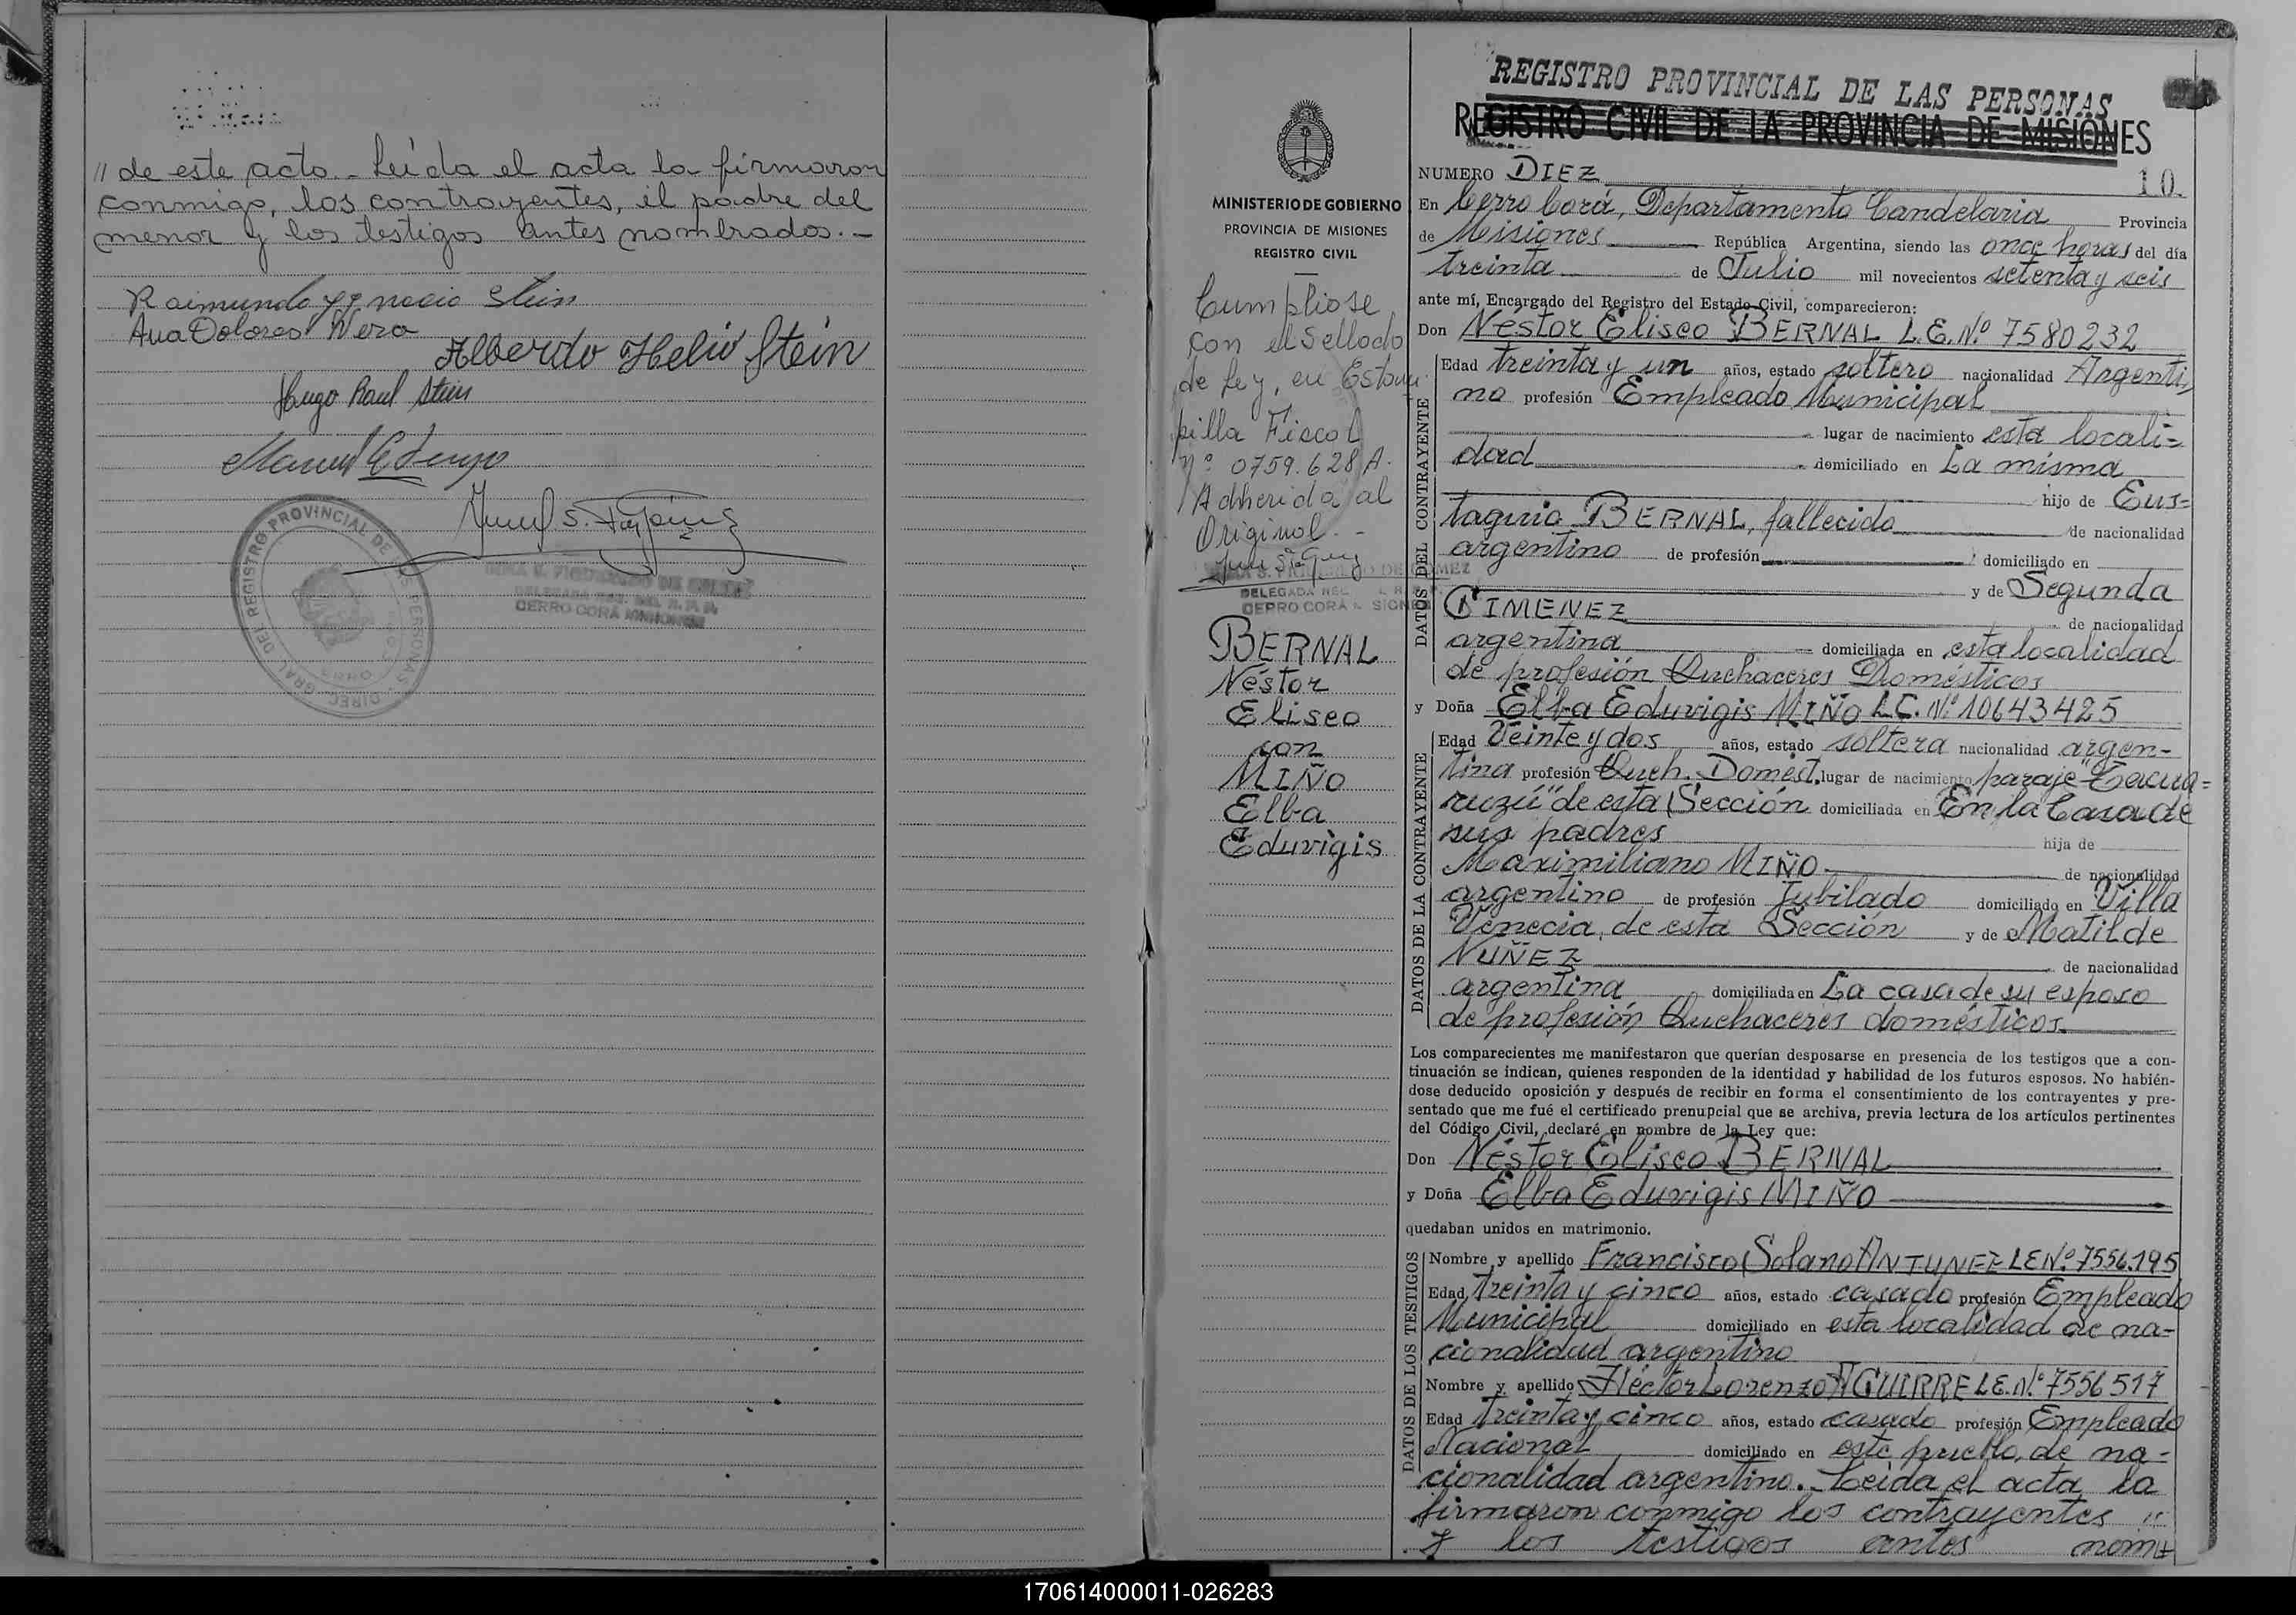 // de este acto.- Leída el acta la firmaron
conmigo, los contrayentes, el padre del
menor y los testigos antes nombrados.-
Raimundo Ygnacio Stein
Ana Dolores Vera
Alberdo Helio Stein
Hugo Raul Stein
REGISTRO PROVINCIAL DE LAS PERSONAS
DIREC. GRAL. DEL
DELEGADA
CERRO CORA MISIONES
MINISTERIO DE GOBIERNO
PROVINCIA DE MISIONES
REGISTRO CIVIL
Cumpliose
con el Sellado
de Ley, en Estam
pilla Fiscal
Nº 0759.628 A.
Adherida al
Original.-
DELEGADA
CERRO CORA
BERNAL
Néstor
Eliseo
con
MIÑO
Elba
Eduvigis
REGISTRO PROVINCIAL DE LAS PERSONAS
REGISTRO CIVIL DE LA PROVINCIA DE MISIONES
NUMERO DIEZ 10.
En Cerro Corá, Departamento Candelaria Provincia
de Misiones República Argentina, siendo las once horas del día
treinta de Julio mil novecientos setenta y seis
ante mí, Encargado del Registro del Estado Civil, comparecieron:
Don Néstor Eliseo BERNAL L.E.Nº 7580232
DATOS DEL CONTRAYENTE
Edad treinta y un años, estado soltero nacionalidad Argenti,
no profesión Empleado Municipal
lugar de nacimiento esta locali=
dad domiciliado en La misma
hijo de Eus=
taquio BERNAL, fallecido de nacionalidad
argentino de profesión domiciliado en
y de Segunda
GIMENEZ de nacionalidad
argentina domiciliada en esta localidad
de profesión Quehaceres Domésticos
y Doña Elba Eduvigis MIÑO L.C. Nº 10643425
DATOS DE LA CONTRAYENTE
Edad Veinte y dos años, estado soltera nacionalidad argen-
tina profesión Queh. Domést. lugar de nacimiento paraje "Tacua=
ruzú" de esta Sección domiciliada en En la Casa de
sus padres hija de
Maximiliano MIÑO de nacionalidad
argentino de profesión Jubilado domiciliado en Villa
Venecia, de esta Sección y de Matilde
NUÑEZ de nacionalidad
argentina domiciliada en La casa de su esposo
de profesión Quehaceres domésticos.
Los comparecientes me manifestaron que querían desposarse en presencia de los testigos que a con-
tinuación se indican, quienes responden de la identidad y habilidad de los futuros esposos. No habién-
dose deducido oposición y después de recibir en forma el consentimiento de los contrayentes y pre-
sentado que me fué el certificado prenupcial que se archiva, previa lectura de los artículos pertinentes
del Código Civil, declaré en nombre de la Ley que:
Don Néstor Eliseo BERNAL
y Doña Elba Eduvigis MIÑO
quedaban unidos en matrimonio.
DATOS DE LOS TESTIGOS
Nombre y apellido Francisco Solano ANTUNEZ LE Nº 7556.195
Edad treinta y cinco años, estado casado profesión Empleado
Municipal domiciliado en esta localidad de na-
cionalidad argentino
Nombre y apellido Héctor Lorenzo AGUIRRE L.E. Nº 7556517
Edad treinta y cinco años, estado casado profesión Empleado
Nacional domiciliado en este pueblo, de na-
cionalidad argentino.- Leída el acta la
firmaron conmigo los contrayentes //
y los testigos antes nom
170614000011-026283